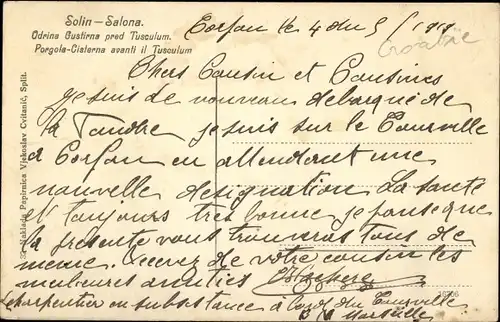 Solin—Salona.
Odrina Gustirna pred Tusculum.
Pergola-Cisterna avanti il Tusculum
Corfou le 4 du 5 / 1919
Croatie
Chers Cousin et Cousines
je suis de nouveau debarqué de
la Foudre je suis sur le Tourville
a Corfou en attendant une
nouvelle designation La santé
et toujours tres bonne je pense que
la présente vous trouveras tous de
meme. Recevez de votre cousin les
meilleures amitiés
charpentier en subsistance à bord du Tourville
Marseille
Naklada Papirnica Vjekoslav Cvitanić, Split.